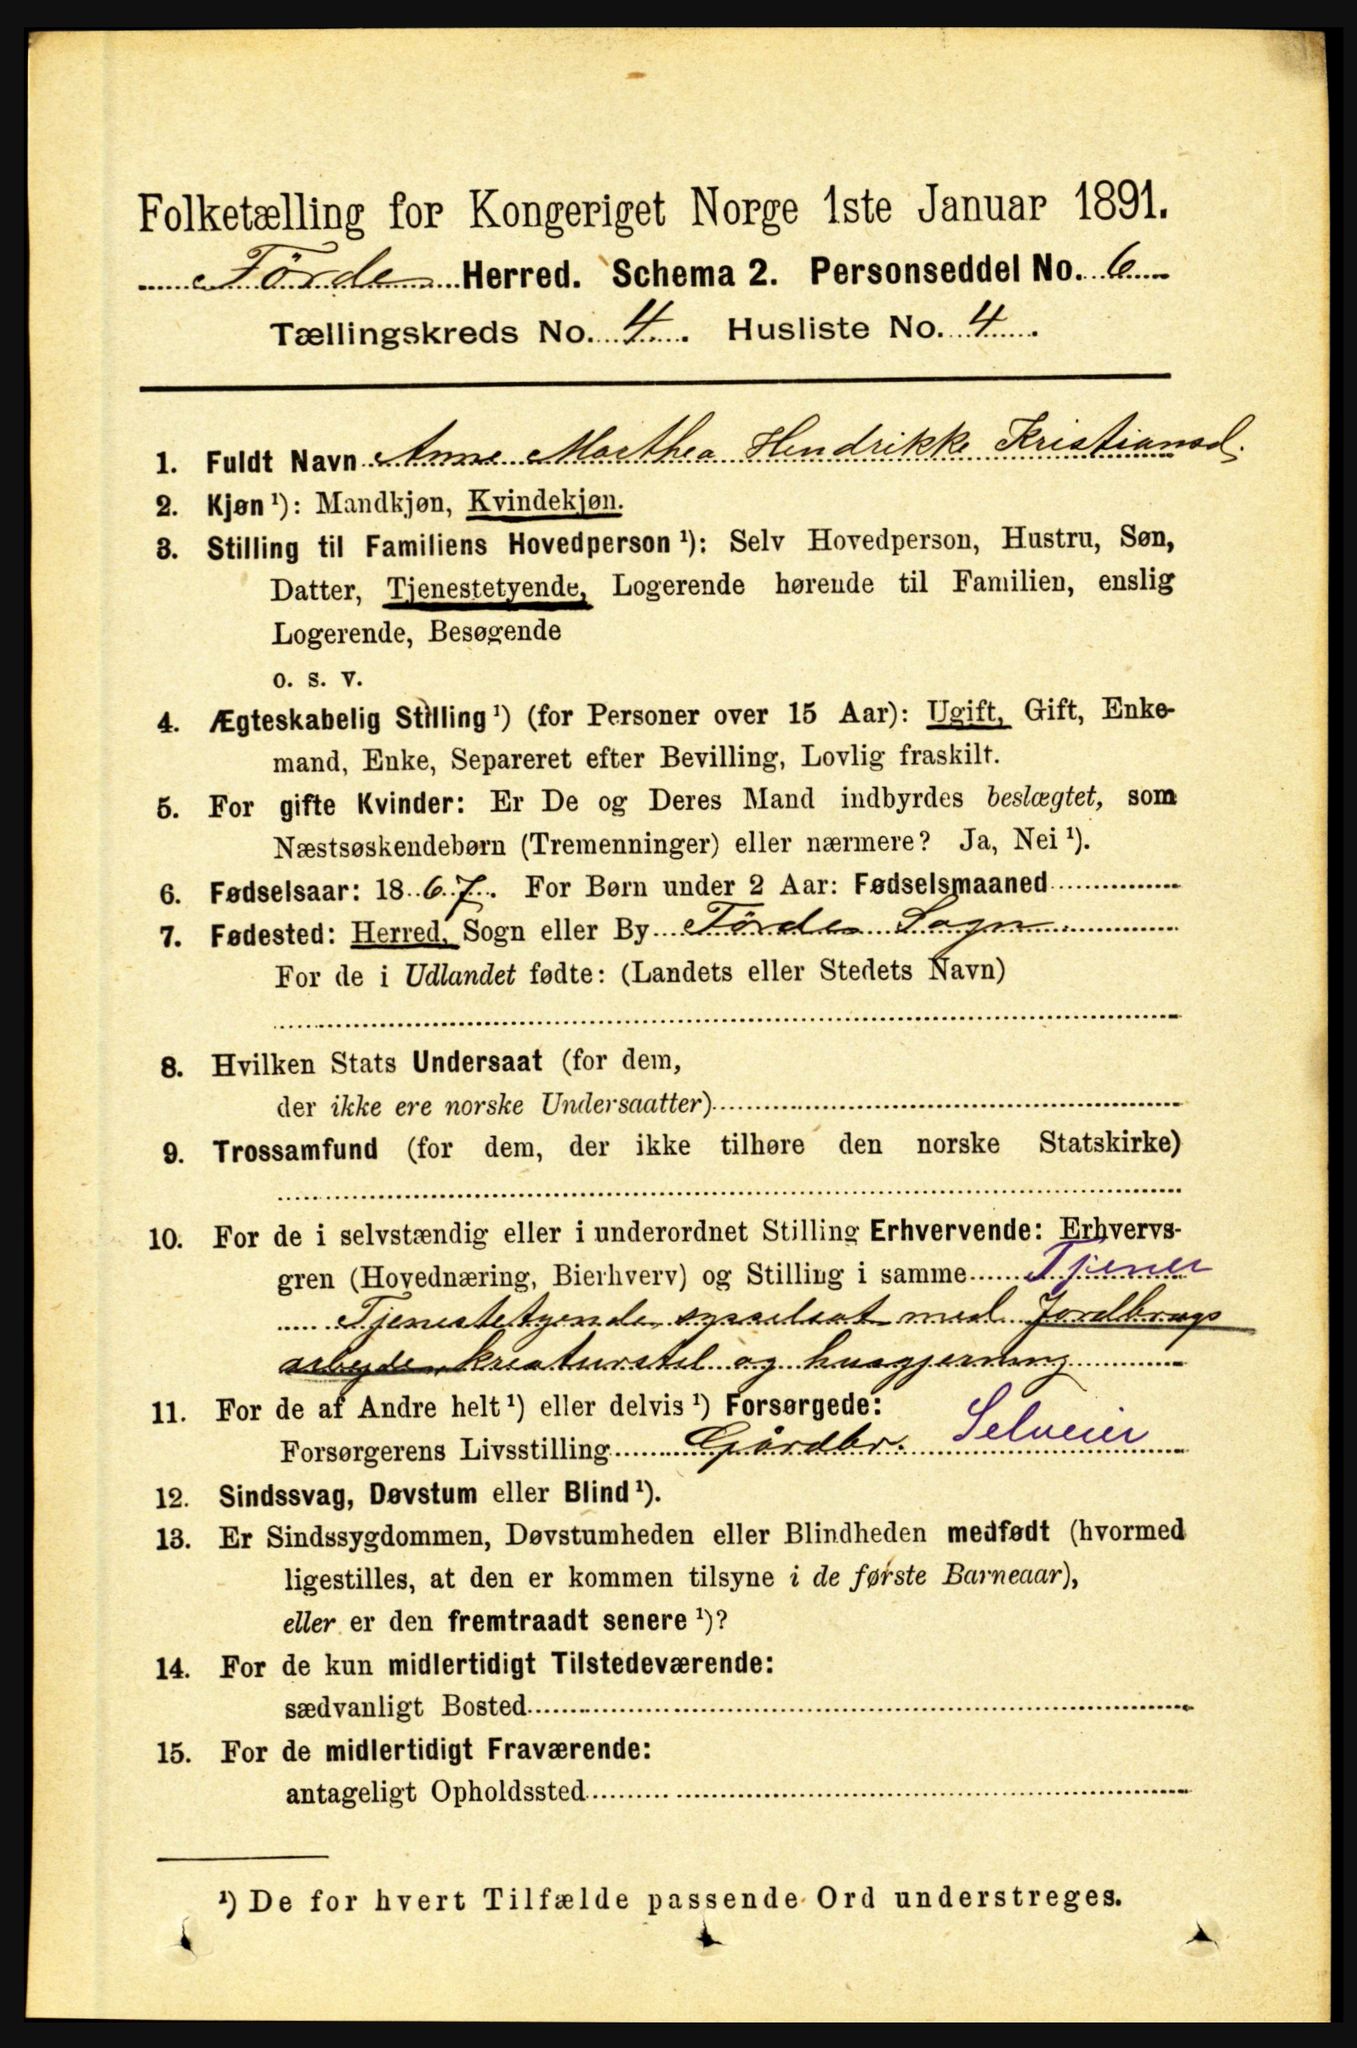 Folketælling for Kongeriget Norge 1ste Januar 1891.
Førde Herred. Schema 2. Personseddel No. 6
Tællingskreds No. 4. Husliste No. 4.
1. Fuldt Navn Anne Marthea Hendrikke Kristiansd.
2. Kjøn¹): Mandkjøn, Kvindekjøn.
3. Stilling til Familiens Hovedperson¹): Selv Hovedperson, Hustru, Søn,
Datter, Tjenestetyende, Logerende hørende til Familien, enslig
Logerende, Besøgende
o. s. v.
4. Ægteskabelig Stilling¹) (for Personer over 15 Aar): Ugift, Gift, Enke-
mand, Enke, Separeret efter Bevilling, Lovlig fraskilt.
5. For gifte Kvinder: Er De og Deres Mand indbyrdes beslægtet, som
Næstsøskendebørn (Tremenninger) eller nærmere? Ja, Nei¹).
6. Fødselsaar: 1867. For Børn under 2 Aar: Fødselsmaaned
7. Fødested: Herred, Sogn eller By Førde Sogn
For de i Udlandet fødte: (Landets eller Stedets Navn)
8. Hvilken Stats Undersaat (for dem,
der ikke ere norske Undersaatter)
9. Trossamfund (for dem, der ikke tilhøre den norske Statskirke)
10. For de i selvstændig eller i underordnet Stilling Erhvervende: Erhvervs-
gren (Hovednæring, Bierhverv) og Stilling i samme Tjener
Tjenestetyende sysselsat med Jordbrugs
arbejde, kreaturstel og husgjerning
11. For de af Andre helt¹) eller delvis¹) Forsørgede:
Forsørgerens Livsstilling Gårdbr. Selveier
12. Sindssvag, Døvstum eller Blind¹).
13. Er Sindssygdommen, Døvstumheden eller Blindheden medfødt (hvormed
ligestilles, at den er kommen tilsyne i de første Barneaar),
eller er den fremtraadt senere¹)?
14. For de kun midlertidigt Tilstedeværende:
sædvanligt Bosted
15. For de midlertidigt Fraværende:
antageligt Opholdssted
¹) De for hvert Tilfælde passende Ord understreges.